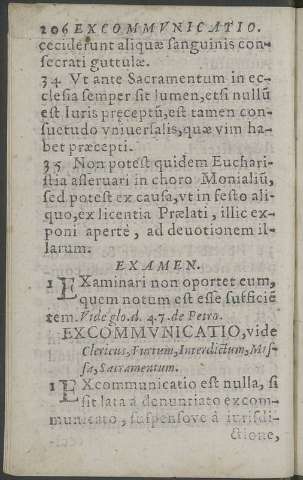 206 EXCOMMVNICATIO.
ceciderunt aliquæ sanguinis con-
secrati guttulæ.
34 Vt ante Sacramentum in ec-
clesia semper sit lumen, etsi nullũ
est Iuris pręceptũ, est tamen con-
suetudo vniuersalis, quæ vim ha-
bet præcepti.
35 Non potest quidem Euchari-
stia asseruari in choro Monialiũ,
sed potest ex causa, vt in festo ali-
quo, ex licentia Prælati, illic ex-
poni apertè, ad deuotionem il-
larum.
EXAMEN.
1 EXaminari non oportet eum,
quem notum est esse sufficiẽ
tem. Vide glo. d. 47. de Petro.
EXCOMMVNICATIO, vide
Clericus, Furtum, Interdictum, Mis-
sa, Sacramentum.
1 EXcommunicatio est nulla, si
sit lata à denuntiato excom-
municato, suspensove à iurisdi-
ctione,